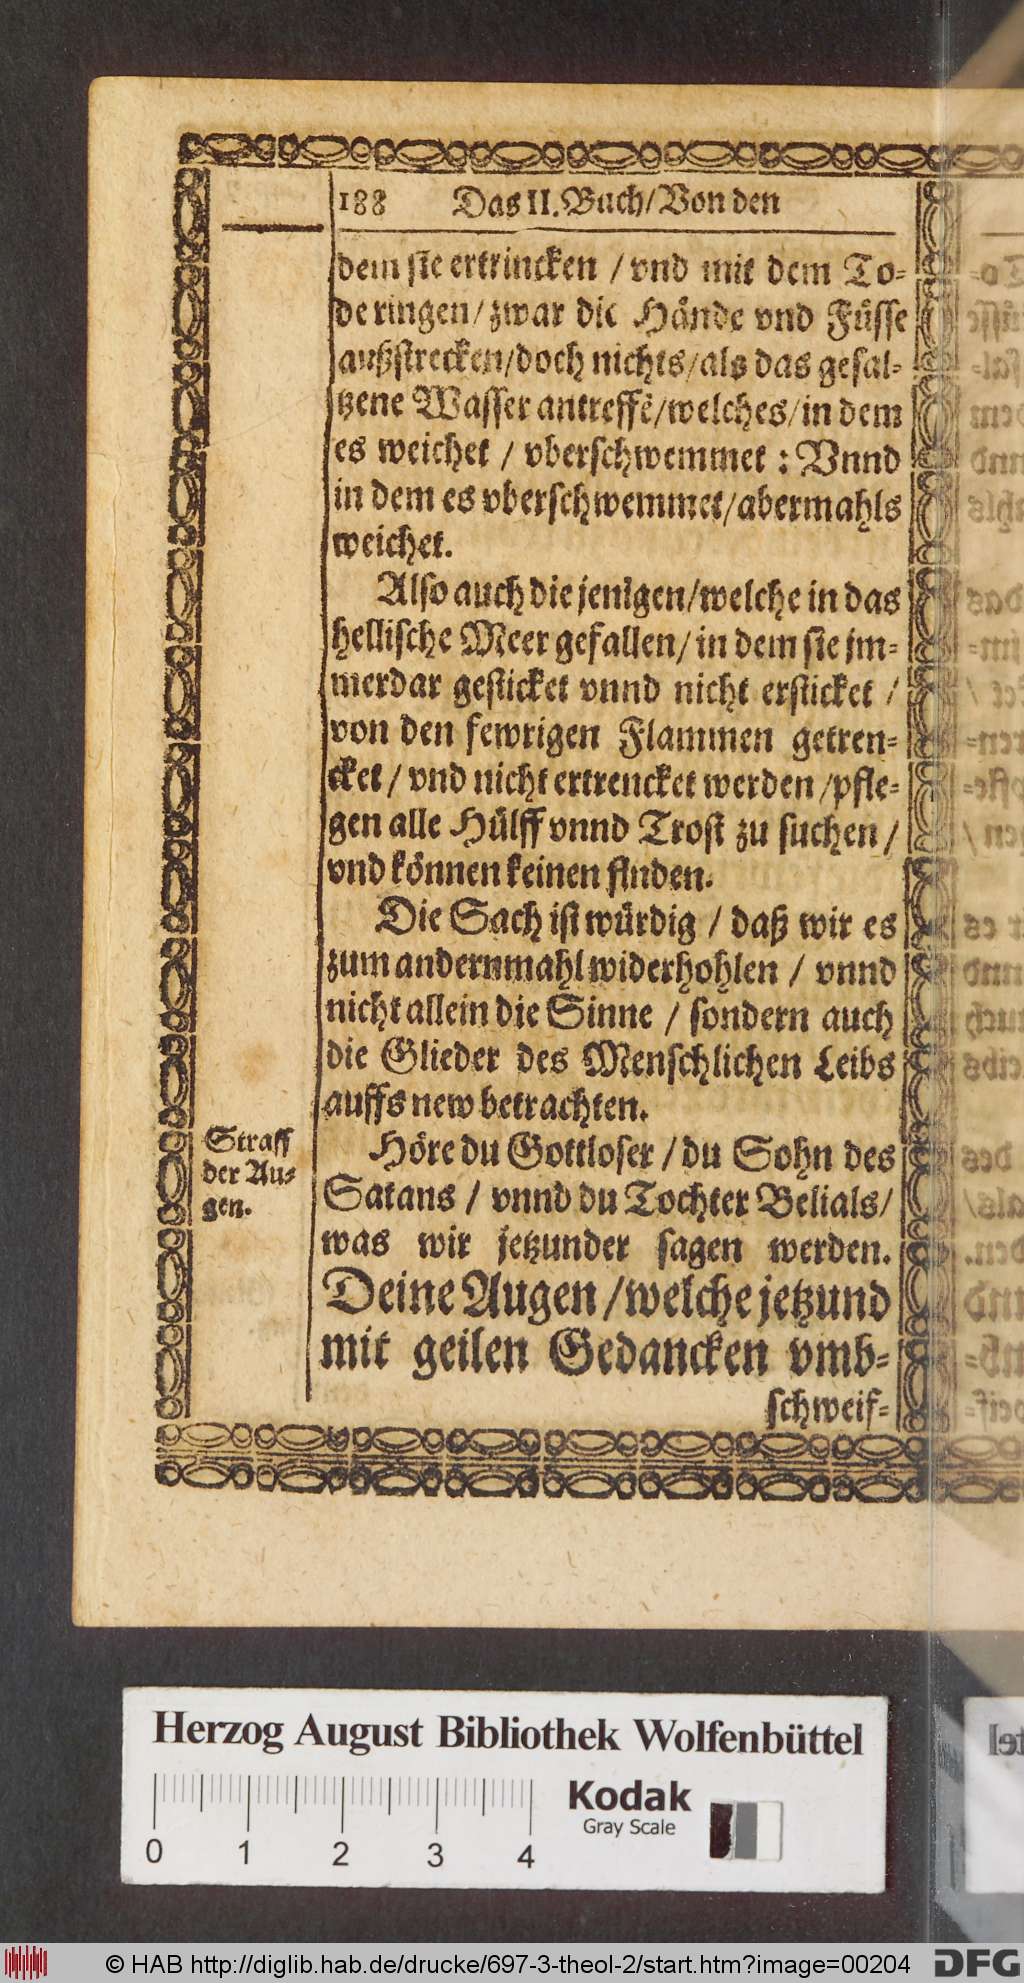 188 Das II. Buch/ Von den
dem sie ertrincken / vnd mit dem To-
de ringen/ zwar die Hände vnd Füsse
außstrecken/doch nichts/als das gesal-
tzene Wasser antreffē/welches/in dem
es weichet / vberschwemmet : Vnnd
in dem es vberschwemmet/abermahls
weichet.
Also auch die jenigen/welche in das
hellische Meer gefallen/ in dem sie jm-
merdar gesticket vnnd nicht ersticket /
von den fewrigen Flammen getren-
cket / vnd nicht ertrencket werden /pfle-
gen alle Hülff vnnd Trost zu suchen /
vnd können keinen finden.
Die Sach ist würdig / daß wir es
zum andernmahl widerhohlen / vnnd
nicht allein die Sinne / sondern auch
die Glieder des Menschlichen Leibs
auffs new betrachten.
Straff
der Au-
gen.
Höre du Gottloser / du Sohn des
Satans / vnnd du Tochter Belials/
was wir jetzunder sagen werden.
Deine Augen /welche jetzund
mit geilen Gedancken vmb-
schweif-
Herzog August Bibliothek Wolfenbüttel
0 1 2 3 4
Kodak
Gray Scale
© HAB http://diglib.hab.de/drucke/697-3-theol-2/start.htm?image=00204
DFG